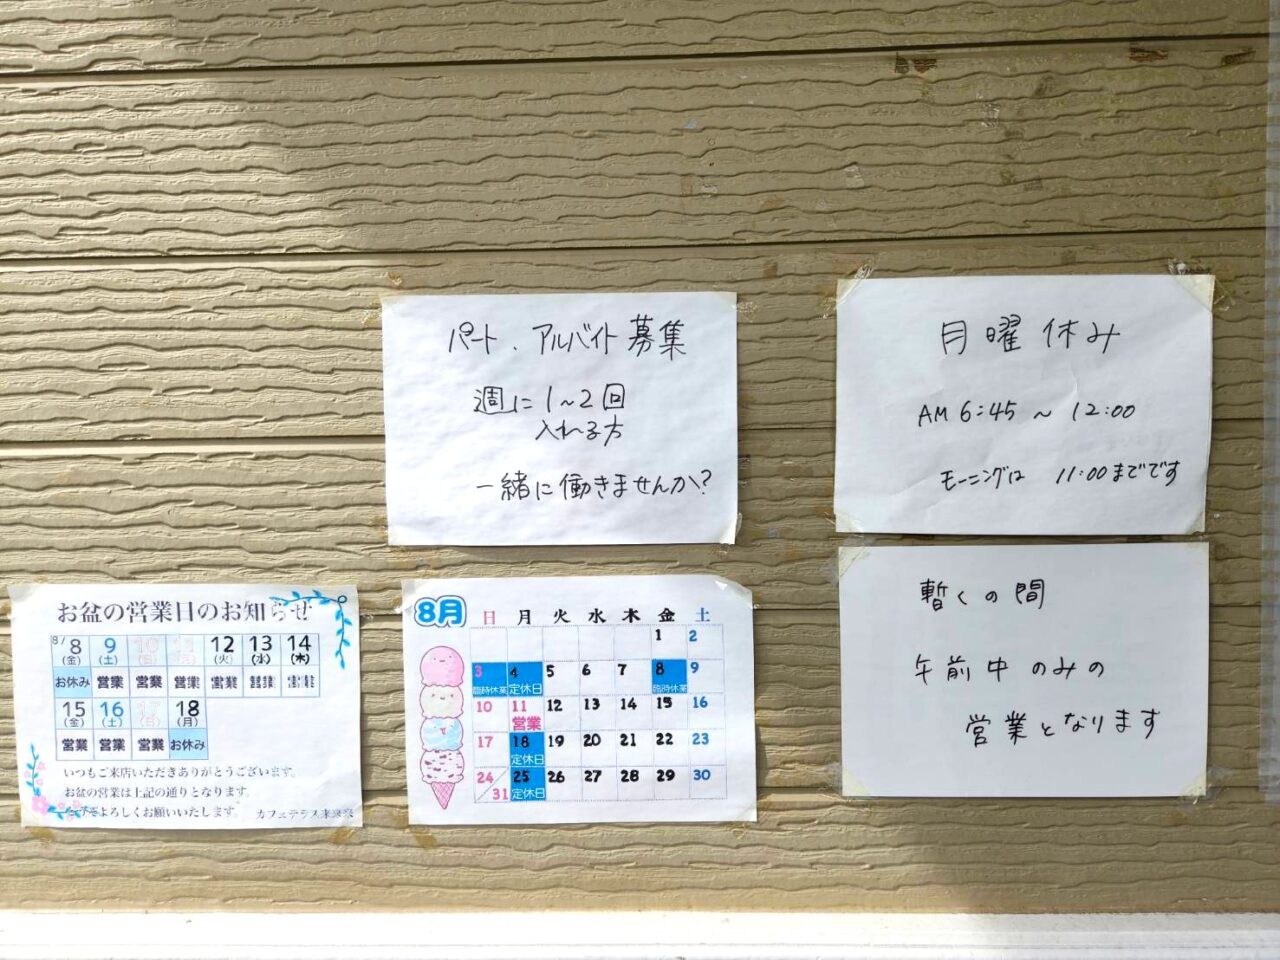 パート、アルバイト募集
週に1~2回
入れる方
一緒に働きませんか?
月曜休み
AM 6:45 ~ 12:00
モーニングは 11:00までです
お盆の営業日のお知らせ
8/8 9 10 11 12 13 14
(金) (土) (日) (月) (火) (水) (木)
お休み 営業 営業 営業 営業 営業 営業
15 16 17 18
(金) (土) (日) (月)
営業 営業 営業 お休み
いつもご来店いただきありがとうございます。
お盆の営業は上記の通りとなります。
よろしくお願いいたします。
カフェテラス
8月
日 月 火 水 木 金 土
1 2
3 4 5 6 7 8 9
臨時休業 定休日 臨時休業
10 11 12 13 14 15 16
営業
17 18 19 20 21 22 23
定休日
24 25 26 27 28 29 30
31 定休日
暫くの間
午前中のみの
営業となります